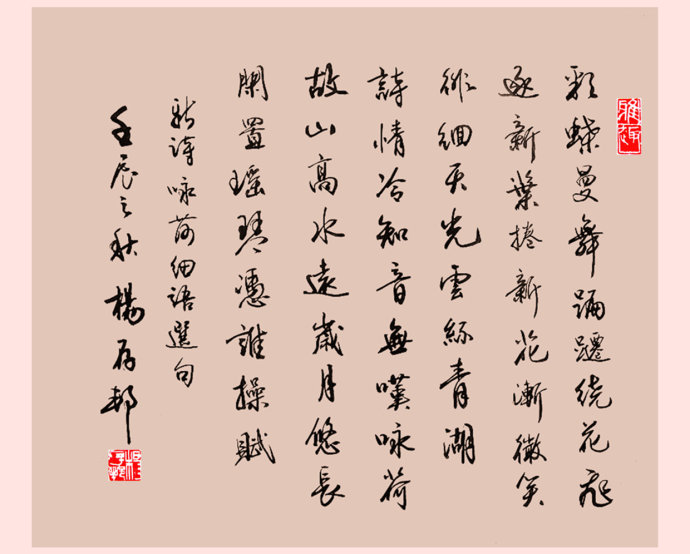 雅趣
彩蝶曼舞蹁躚绕花飛
逐新葉捲新花漸微笑
細天光雲絲青湖
詩情冷知音無嘆咏荷
故山高水遠歲月悠長
閑置瑶琴憑誰操賦
新詩咏荷细語選句
壬辰之秋楊存邦